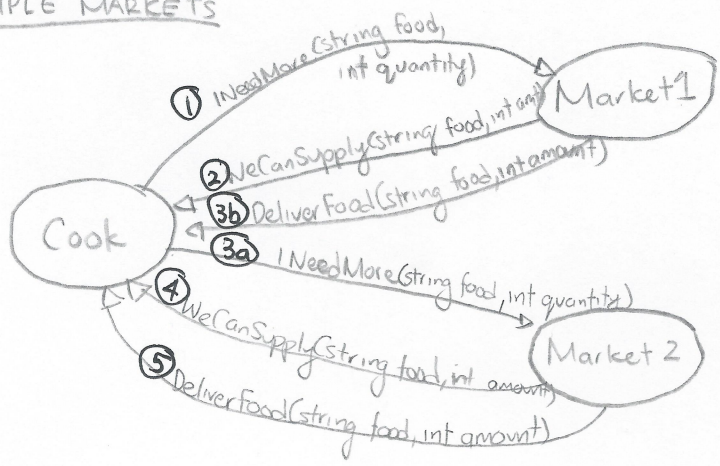 IPLE MARKETS
① INeedMore(string food,
int quantity)
Market1
② WeCanSupply(string food, int amt)
③b DeliverFood(string food, int amount)
Cook
③a INeedMore(string food, int quantity)
④ WeCanSupply(string food, int amount)
Market 2
⑤ DeliverFood(string food, int amount)